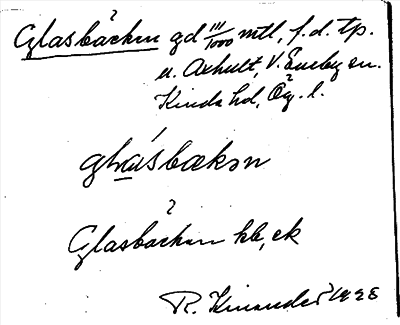 Glasbäcken gd 111/1000 mtl, f.d. tp.
u. Axhult, V. Eneby sn.
Kinda hd, Ög. l.
glɑsbækən
Glasbäcken kb, ek
R. Kinander 1928